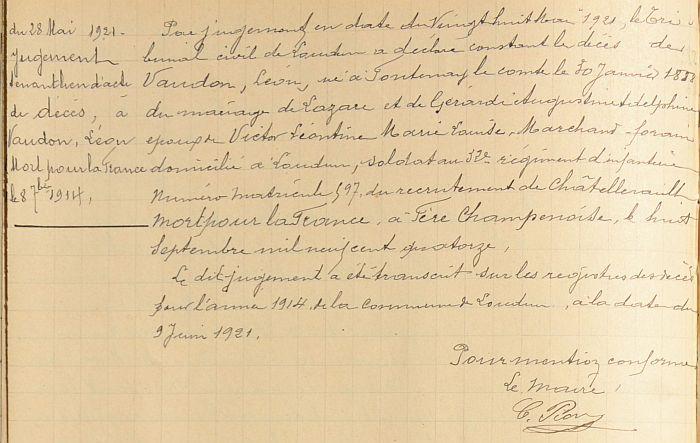 du 28 Mai 1921.
Jugement
tenant lieu d'acte
de décès, à
Vaudon, Léon
Mort pour la France
le 8 7bre 1914,
Par jugement en date du Vingt huit Mai 1921, le Tri-
bunal civil de Loudun a déclaré constant le décès de
Vaudon, Léon, né à Fontenay le comte le 30 Janvier
du mariage de Lazare et de Gérard Augustine delphine
époux de Victor Léontine Marie Louise, Marchand forain
domicilié à Loudun, soldat au 32e régiment d'infanterie
Numéro matricule 597, du recrutement de Châtellerault
mort pour la France, à Fère Champenoise, le huit
Septembre mil neuf cent quatorze,
Le dit jugement a été transcrit sur les registres des décès
pour l'année 1914, de la commune de Loudun, à la date du
9 Juin 1921.
Pour mention conforme
Le Maire,